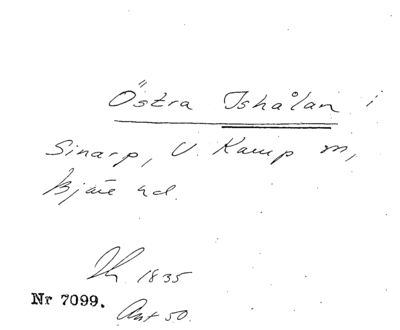 Östra Ishålan i
Sinarp, V. Karup sn,
Bjäre hd.
1835
Nr 7099.
Ant 50.